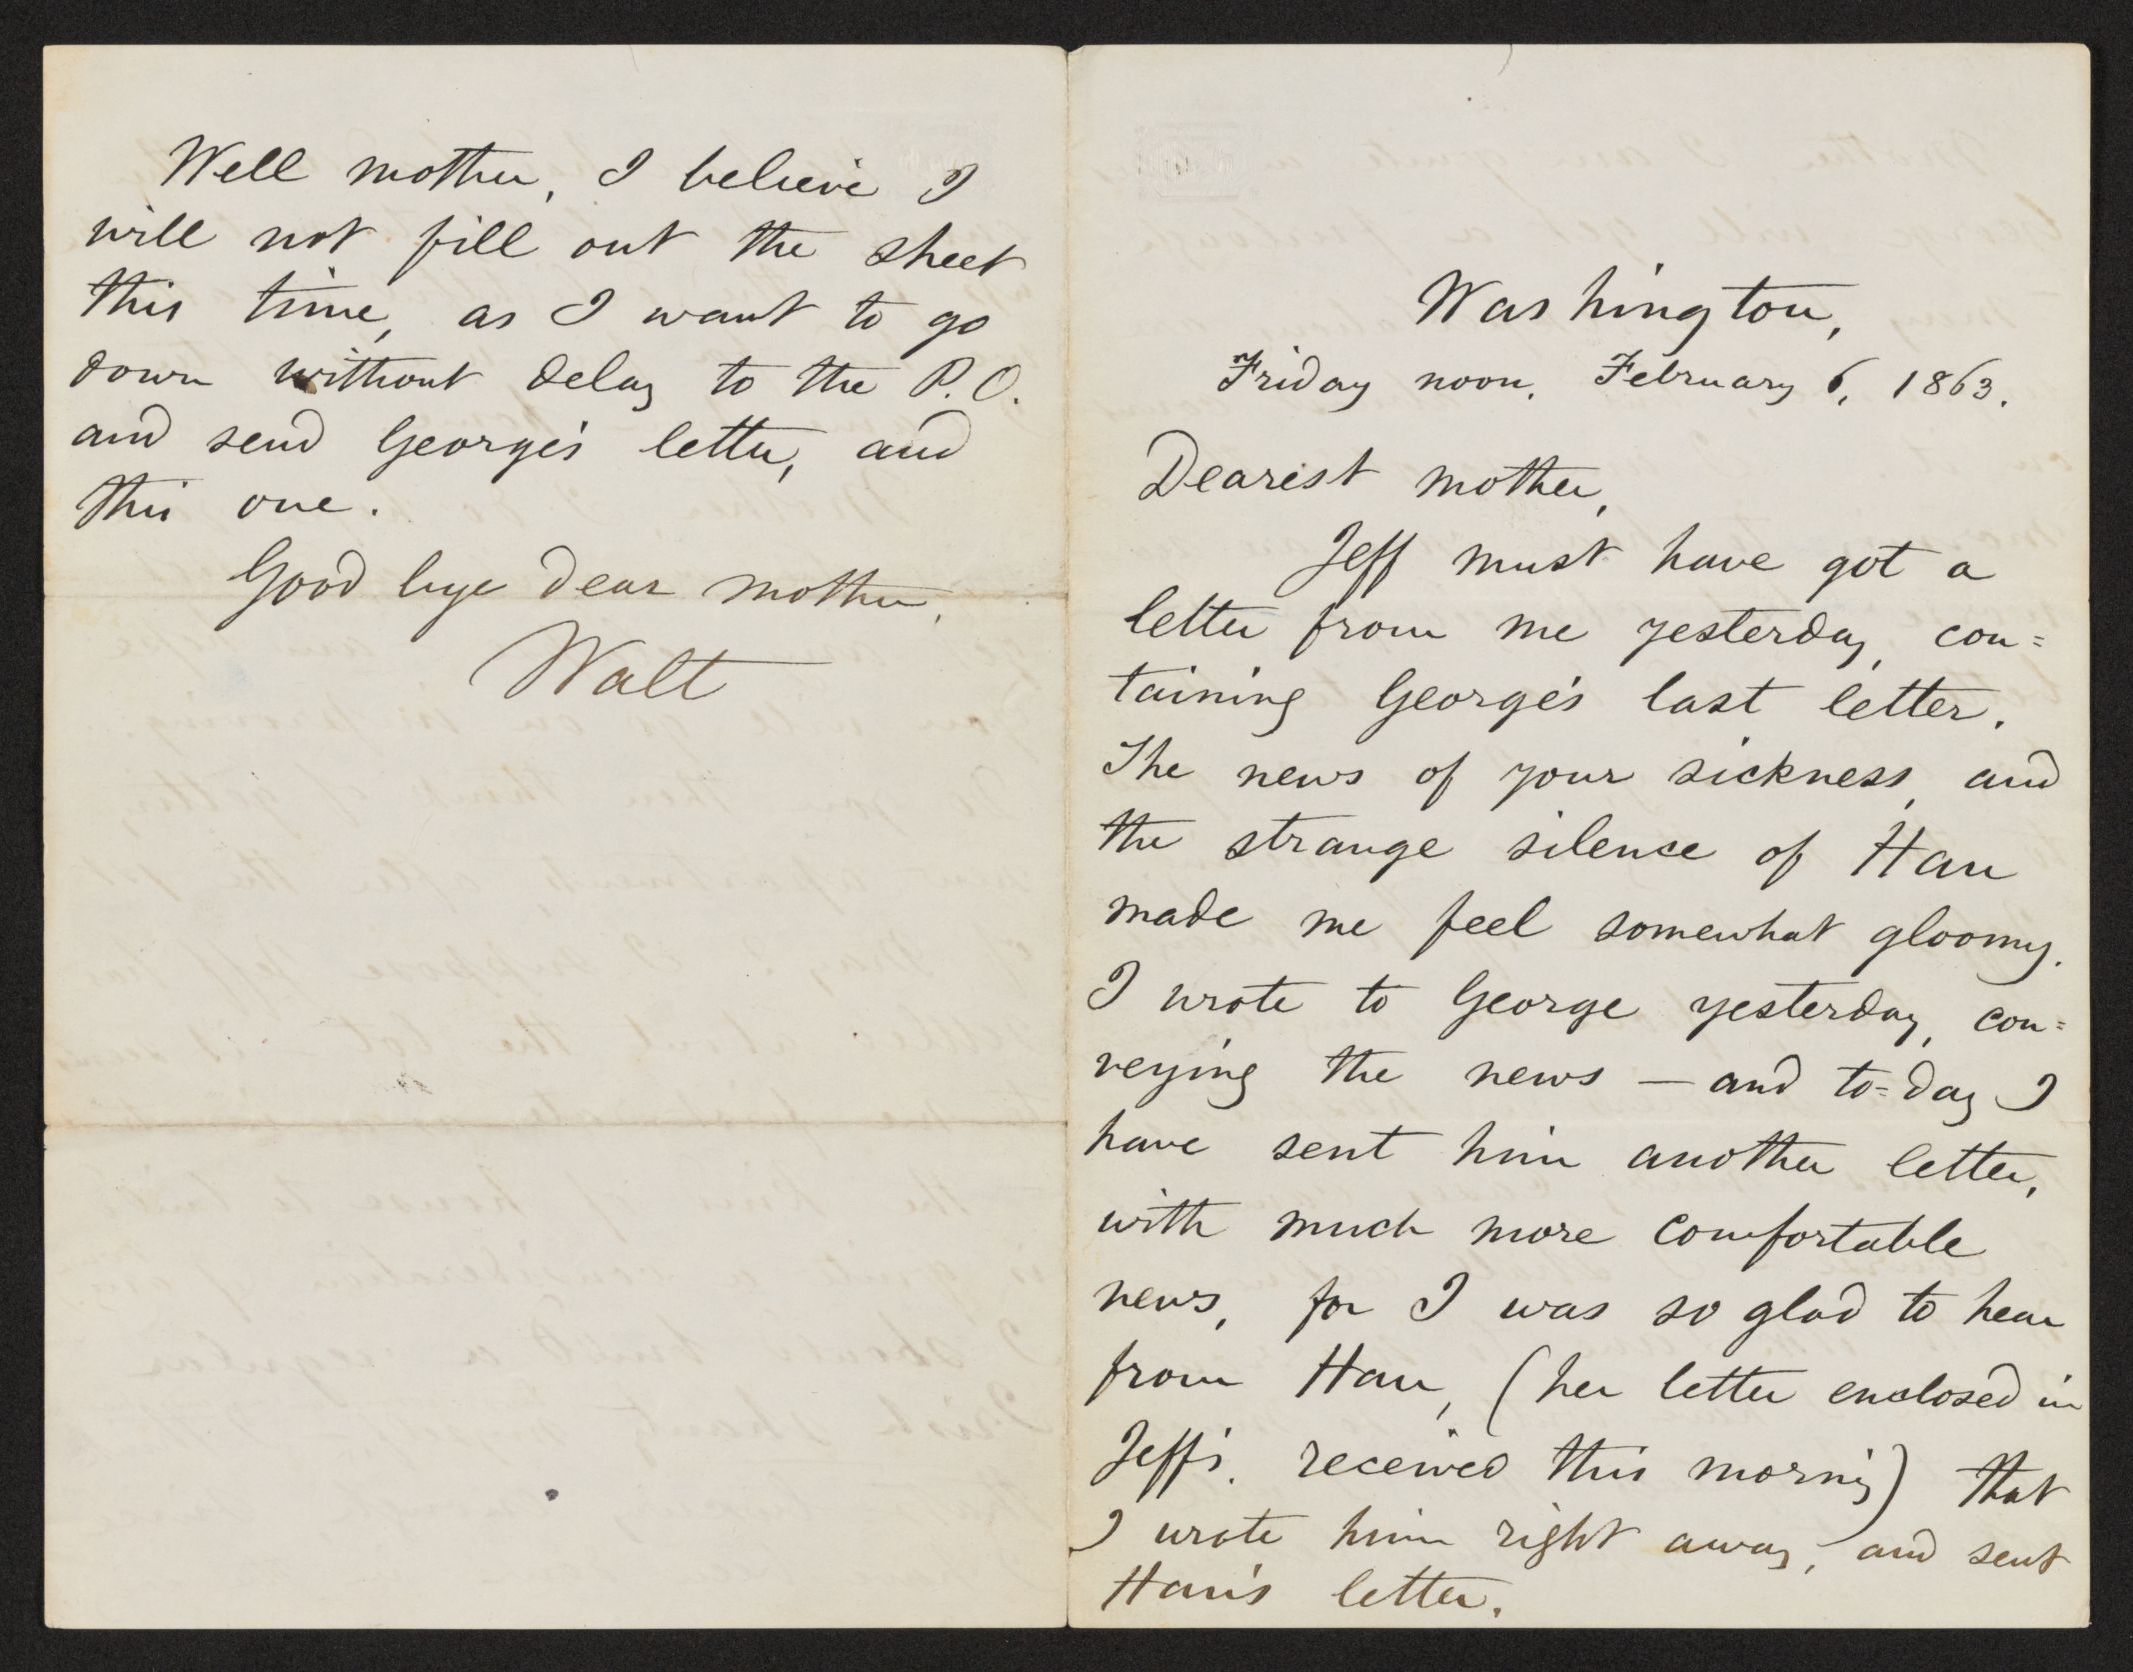 Washington,
Friday noon, February 6, 1863.
Dearest mother,
Jeff must have got a
letter from me yesterday, con=
taining George's last letter.
The news of your sickness, and
the strange silence of Han
made me feel somewhat gloomy.
I wrote to George yesterday, con=
veying the news — and to=day I
have sent him another letter,
with much more comfortable
news, for I was so glad to hear
from Han, (her letter enclosed in
Jeff's, received this morning) that
I wrote him right away, and sent
Han's letter.
Well mother, I believe I
will not fill out the sheet
this time, as I want to go
down without delay to the P.O.
and send George's letter, and
this one.
Good bye dear mother,
Walt